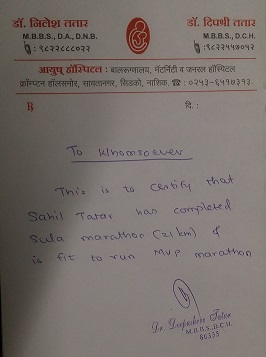 डॉ. निलेश ततार
M.B.B.S., D.A., D.N.B.
डॉ. दिपश्री ततार
M.B.B.S., D.C.H.
आयुष हॉस्पिटल : बालरूग्णालय, मॅटर्निटी व जनरल हॉस्पिटल
क्रॉम्प्टन हॉलसमोर, सावतानगर, सिडको, नाशिक.
दि. :
To Whomsoever
This is to certify that
Sahil Tatar has completed
Sula marathon (21 km) &
is fit to run MVP marathon
Dr. Deepashree Tatar
M.B.B.S., D.C.H.
86335